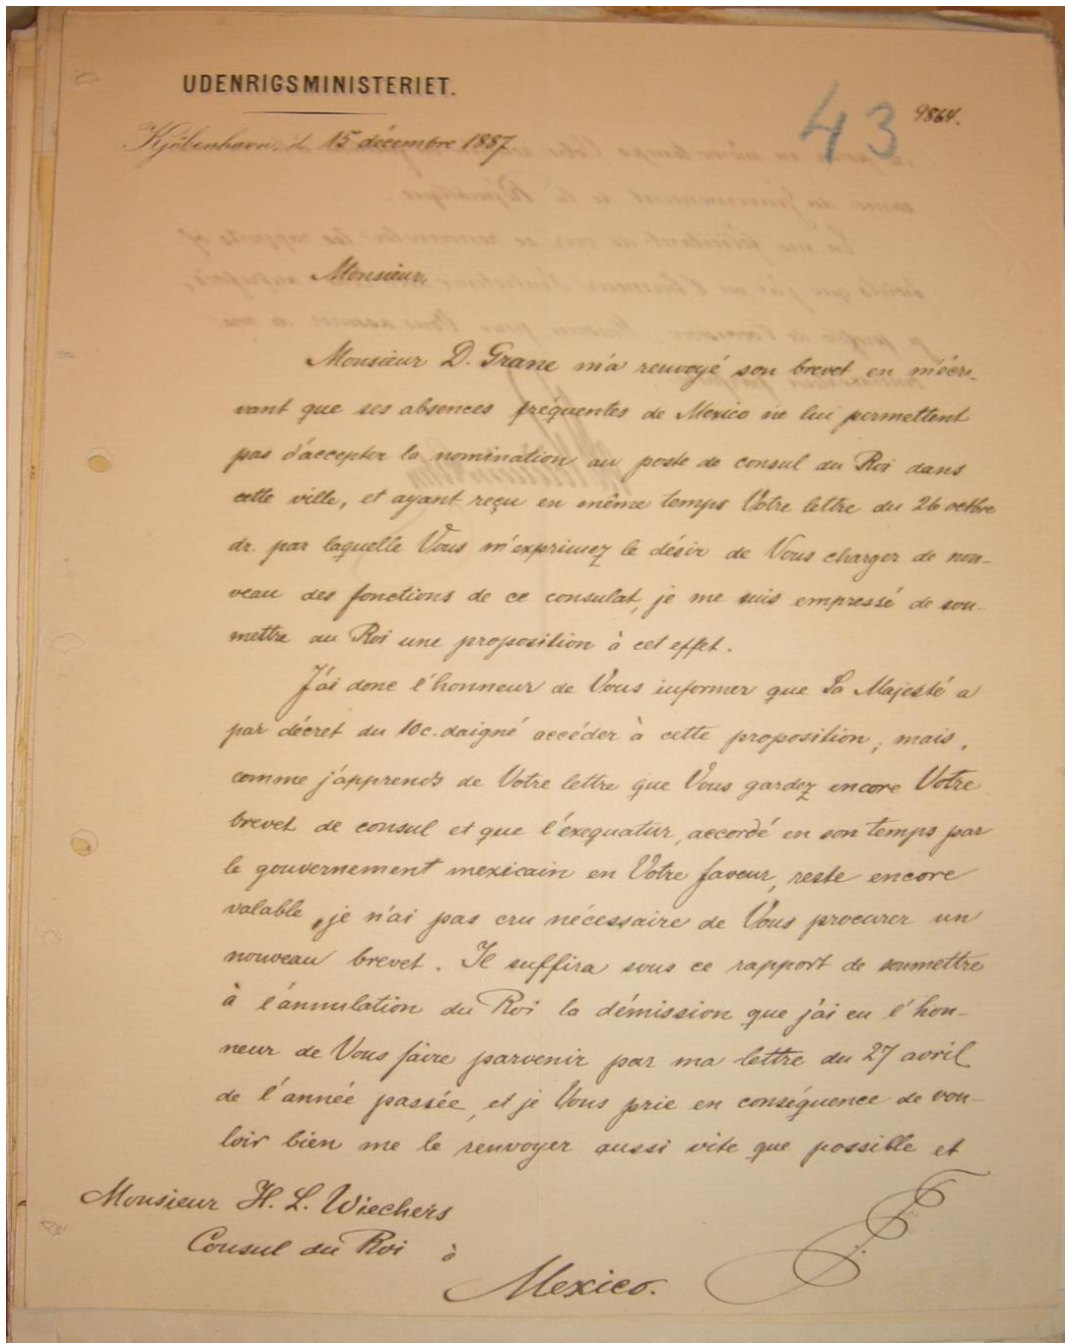 UDENRIGSMINISTERIET.
43
9864.
Kjöbenhavn, d. 15 décembre 1887.
Monsieur,
Monsieur D. Grane m'a renvoyé son brevet en m'écri-
vant que ses absences fréquentes de Mexico ne lui permettent
pas d'accepter la nomination au poste de consul du Roi dans
cette ville, et ayant reçu en même temps Votre lettre du 26 octbre
dr. par laquelle Vous m'exprimez le désir de Vous charger de nou-
veau des fonctions de ce consulat, je me suis empressé de sou-
mettre au Roi une proposition à cet effet.
J'ai donc l'honneur de Vous informer que Sa Majesté a
par décret du 10 c. daigné accéder à cette proposition; mais,
comme j'apprends de Votre lettre que Vous gardez encore Votre
brevet de consul et que l'éxequatur, accordé en son temps par
le gouvernement mexicain en Votre faveur, reste encore
valable, je n'ai pas cru nécessaire de Vous procurer un
nouveau brevet. Il suffira sous ce rapport de soumettre
à l'annulation du Roi la démission que j'ai eu l'hon-
neur de Vous faire parvenir par ma lettre du 27 avril
de l'année passée, et je Vous prie en conséquence de vou-
loir bien me le renvoyer aussi vite que possible et
Monsieur H. L. Wiechers
Consul du Roi à
Mexico.